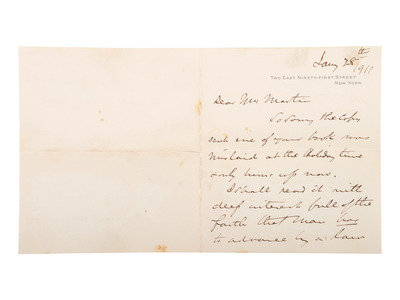 Jany 28th
1911
TWO EAST NINETY-FIRST STREET
NEW YORK
Dear Mrs Martin
So Sorry the copy
sent me of your book was
mislaid at the Holiday time
only turns up now.
I shall read it with
deep interest full of the
faith that Man has
to advance by a law